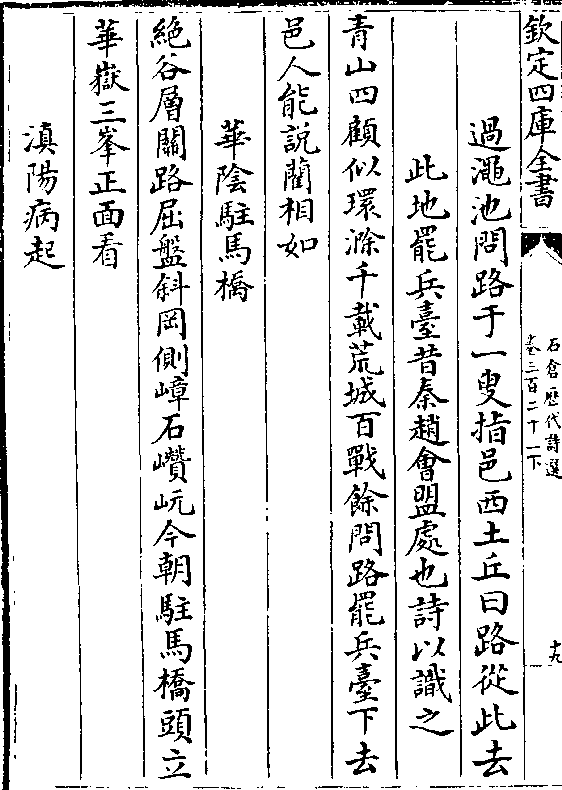 欽定四庫全書
石倉歷代詩選
卷三百二十一下
十九
過澠池問路于一叟指邑西土丘曰路從此去
此地罷兵臺昔秦趙會盟處也詩以識之
青山四顧似環滁千載荒城百戰餘問路罷兵臺下去
邑人能說藺相如
華陰駐馬橋
絶谷層關路屈盤斜岡側嶂石巑岏今朝駐馬橋頭立
華嶽三峯正面看
滇陽病起